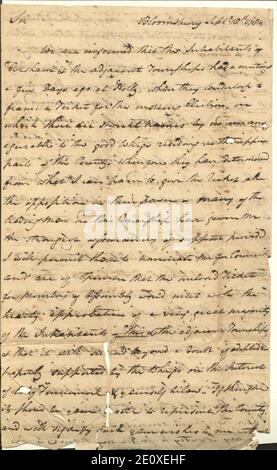 Sir Bloomsbury Sept. 18th 1784
We are informed that the Inhabitants of
& the adjacent Townships had a meeting
a few Days ago at when they concluded to
frame a Ticket for the ensuing Election, on
which there are several names by no means
agreeable to the good Whigs residing in the upper
parts of the County, whereupon they have determined
from what I can learn to give the Ticket all
the opposition in their power — many of the
leading Men in the Township have given me
the strongest assurances of support provided
I will permit them to nominate me for Council
and are of Opinion that the inclosed Ticket
for Members of Assembly would meet with the
hearty approbation of a very great majority
of the Inhabitants of this & the adjacent Townships
& that it will and beyond a doubt if adopted
be supported by the Whigs in the Interest
of & yourself below. If then
it should be your to represent the County
and will signify such your wishes to me
alamy
Image ID: 2E0XEHF
www.alamy.com